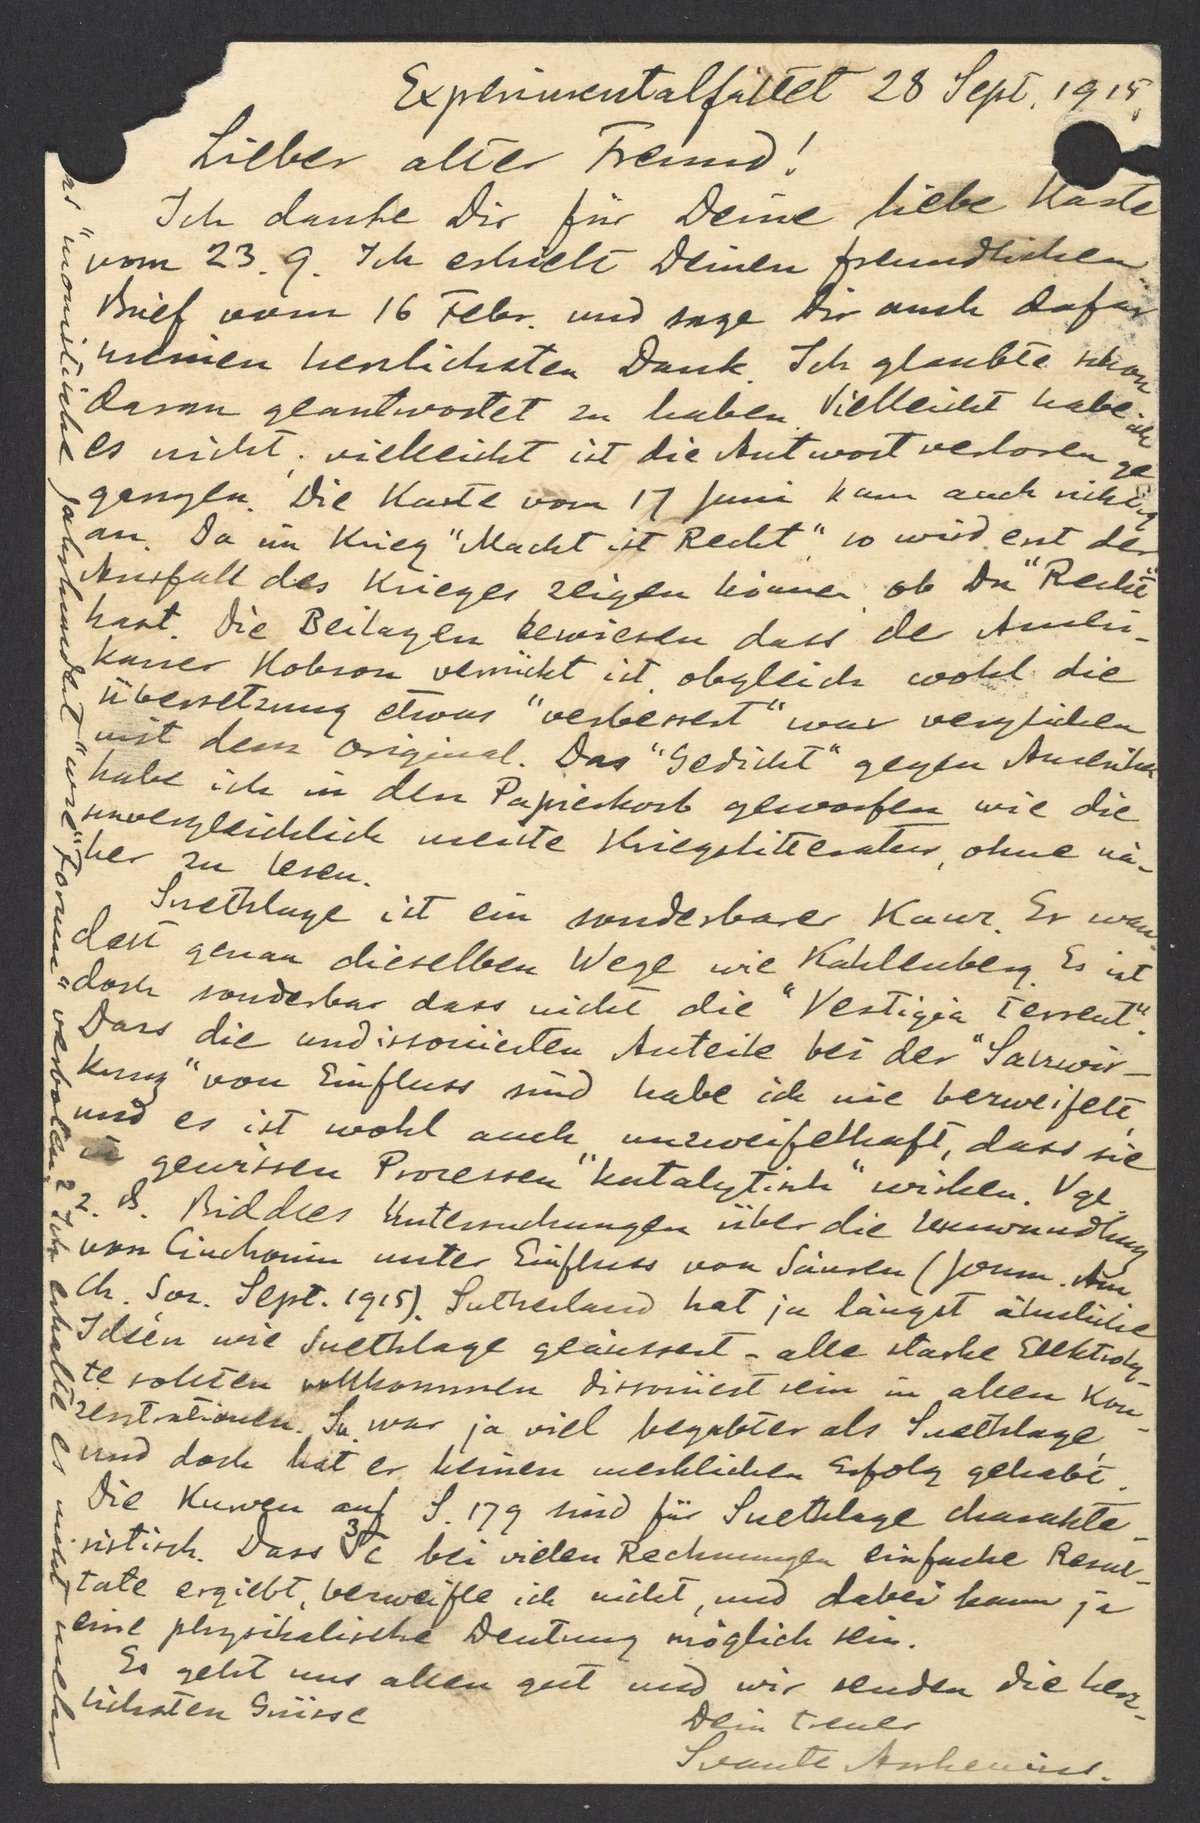 Experimentalfältet 28 Sept. 1915.
Lieber alter Freund!
Ich danke Dir für Deine liebe Karte
vom 23. 9. Ich erhielt Deinen freundlichen
Brief vom 16 Febr. und sage Dir auch dafür
meinen herzlichsten Dank. Ich glaubte schon
daran geantwortet zu haben. Vielleicht habe ich
es nicht, vielleicht ist die Antwort verloren ge
gangen. Die Karte vom 17 Juni kam auch richtig
an. Da im Krieg "Macht ist Recht", so wird erst der
Ausfall des Krieges zeigen können ob Du "Recht"
hast. Die Beilagen bewiesen dass de Ameri-
kaner Hobson verrückt ist, obgleich wohl die
Übersetzung etwas "verbessert" war verglichen
mit dem Original. Das "Gedicht" gegen Amerika
habe ich in den Papierkorb geworfen wie die
unvergleichlich meiste Kriegslitteratur, ohne nä-
her zu lesen.
Snethlage ist ein sonderbarer Kauz. Er wan-
delt genau dieselben Wege wie Kahlenberg. Es ist
doch sonderbar dass nicht die "Vestigia terrent".
Dass die undissociierten Anteile bei der "Salzwir-
kung" von Einfluss sind habe ich nie bezweifelt,
und es ist wohl auch unzweifelhaft, dass sie
in gewissen Prozessen "katalytisch" wirken. Vgl.
z. B. Biddles Untersuchungen über die Umwandlung
von Cinchonin unter Einfluss von Säuren (Journ. Am
Ch. Soc. Sept. 1915). Sutherland hat ja längst ähnliche
Idéen wie Snethlage geäussert - alle starke Elektroly-
te sollten vollkommen dissociiert sein in allen Kon-
zentrationen. Su. war ja viel begabter als Snethlage,
und doch hat er keinen merklichen Erfolg gehabt.
Die Kurven auf S. 179 sind für Snethlage charakte-
ristisch. Dass ³√c bei vielen Rechnungen einfache Resul-
tate ergiebt, bezweifle ich nicht, und dabei kann ja
eine physikalische Deutung möglich sein.
Es geht uns allen gut und wir senden die herz-
lichsten Grüsse
Dein treuer
Svante Arrhenius.
"monistische Jahrhundert" wie "Forum" verboten? Ich erhalte es nicht mehr